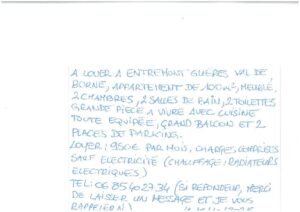 A LOUER A ENTREMONT GLIERES VAL DE
BORNE, APPARTEMENT DE 100 m², MEUBLÉ,
2 CHAMBRES, 2 SALLES DE BAIN, 2 TOILETTES
GRANDE PIÈCE A VIVRE AVEC CUISINE
TOUTE EQUIPÉE, GRAND BALCON ET 2
PLACES DE PARKING.
LOYER: 950€ PAR MOIS, CHARGES COMPRISES
SAUF ELECTRICITÉ (CHAUFFAGE: RADIATEURS
ELECTRIQUES)
TEL: 06 85 40 27 34 (SI REPONDEUR, MERCI
DE LAISSER UN MESSAGE ET JE VOUS
RAPPELERAI)